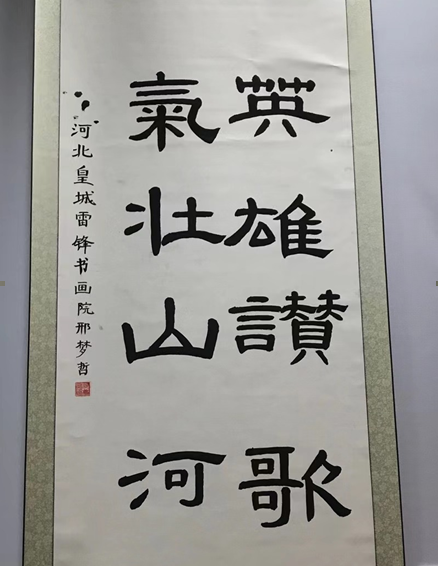 英雄讃歌
氣壮山河
河北皇城雷锋书画院邢梦哲